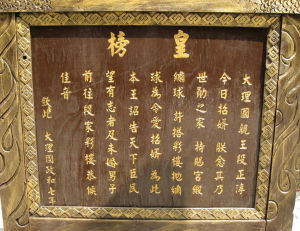 皇榜
大理國親王段正淳
今日招婿 朕念其乃
世勛之家 特賜官緞
繡球 許搭彩樓拋繡
球為令愛招婿 為此
本王詔告天下臣民
望有志者及未婚男子
前往段家彩樓恭候
佳音
欽此 大理國政和七年